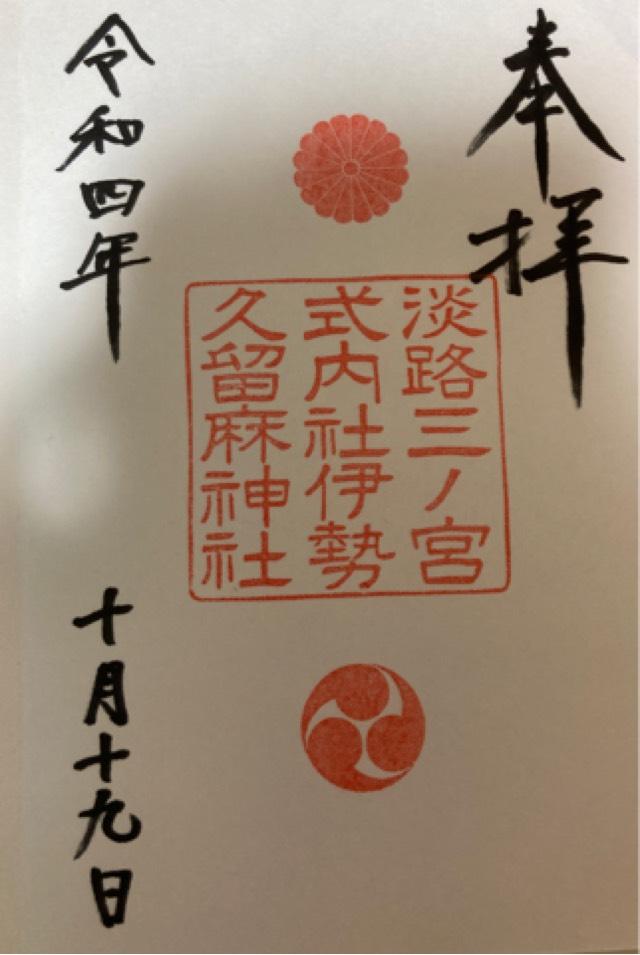 奉拝
淡路三ノ宮
式内社伊勢
久留麻神社
令和四年
十月十九日